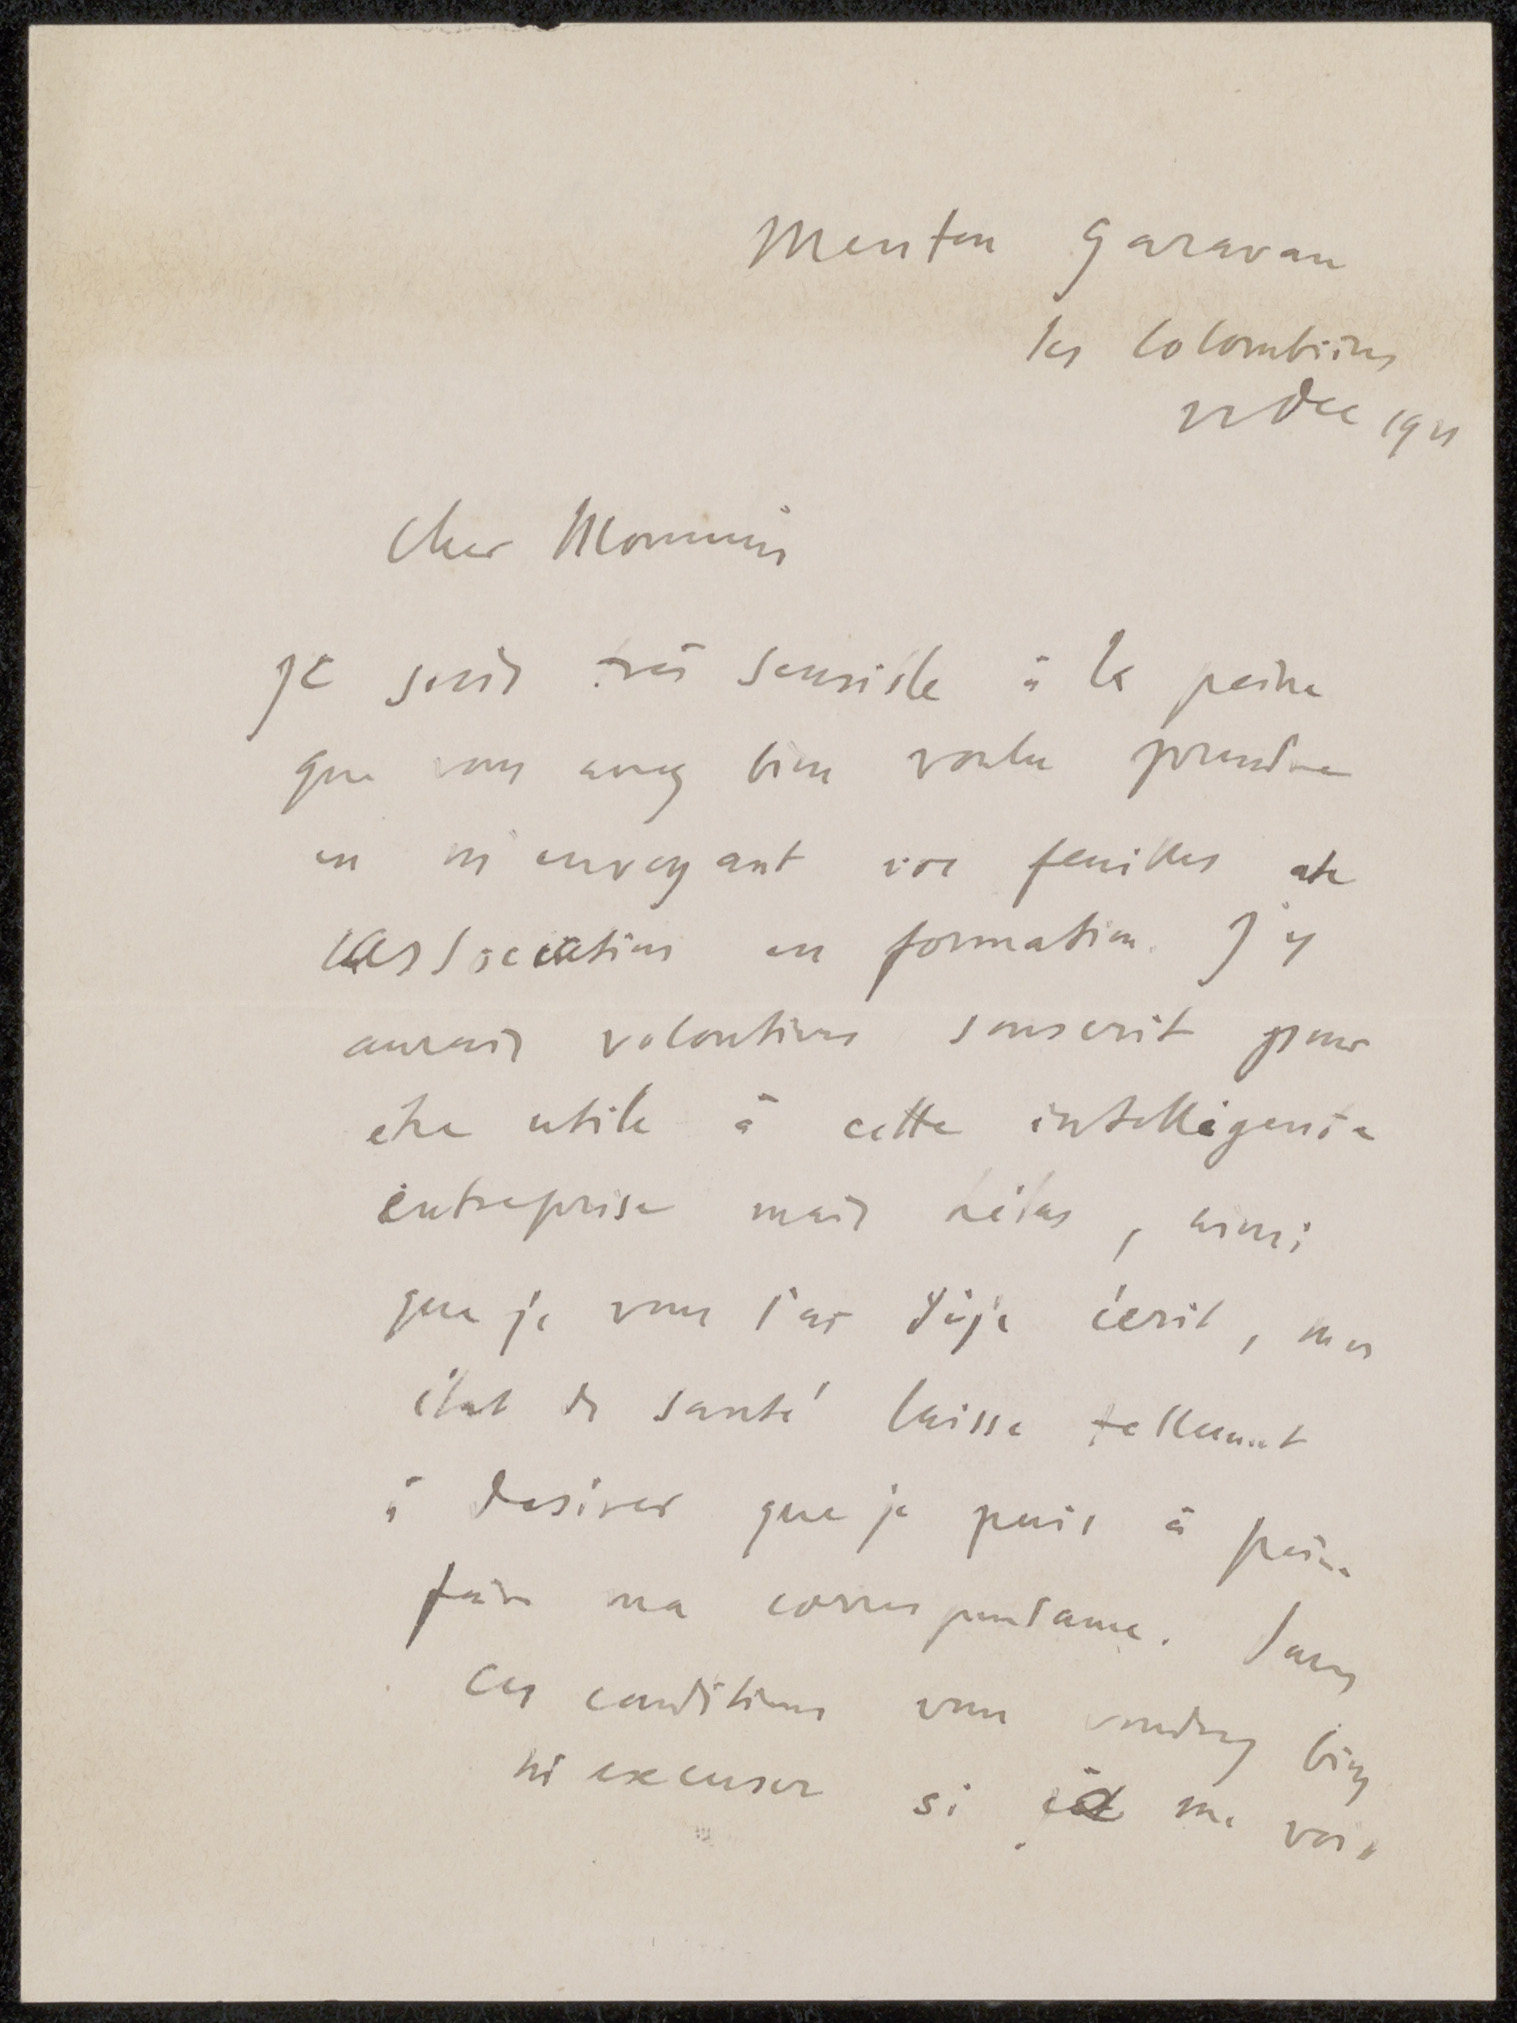 Menton Garavan
les Colombières
22 Dec 1921
Cher Monsieur
je suis très sensible à la peine
que vous avez bien voulu prendre
en m'envoyant vos feuilles
associations en formation. J'y
aurais volontiers souscrit pour
etre utile à cette intelligente
entreprise mais hélas, ainsi
que je vous l'ai déjà écrit, mon
état de santé laisse tellement
à desirer que je puis à peine
faire ma correspondance. Dans
ces conditions vous voudrez bien
m'excuser si je me vois